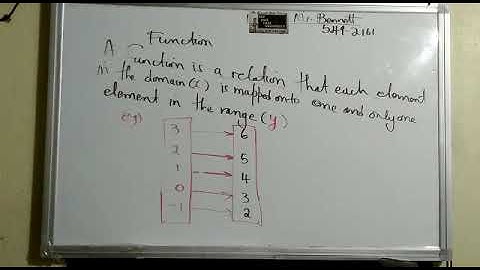 Mr. Bennett
Function
A function is a relation that each element
in the domain(x) is mapped onto one and only one
element in the range (y)
eg)
3 6
2 5
1 4
0 3
-1 2